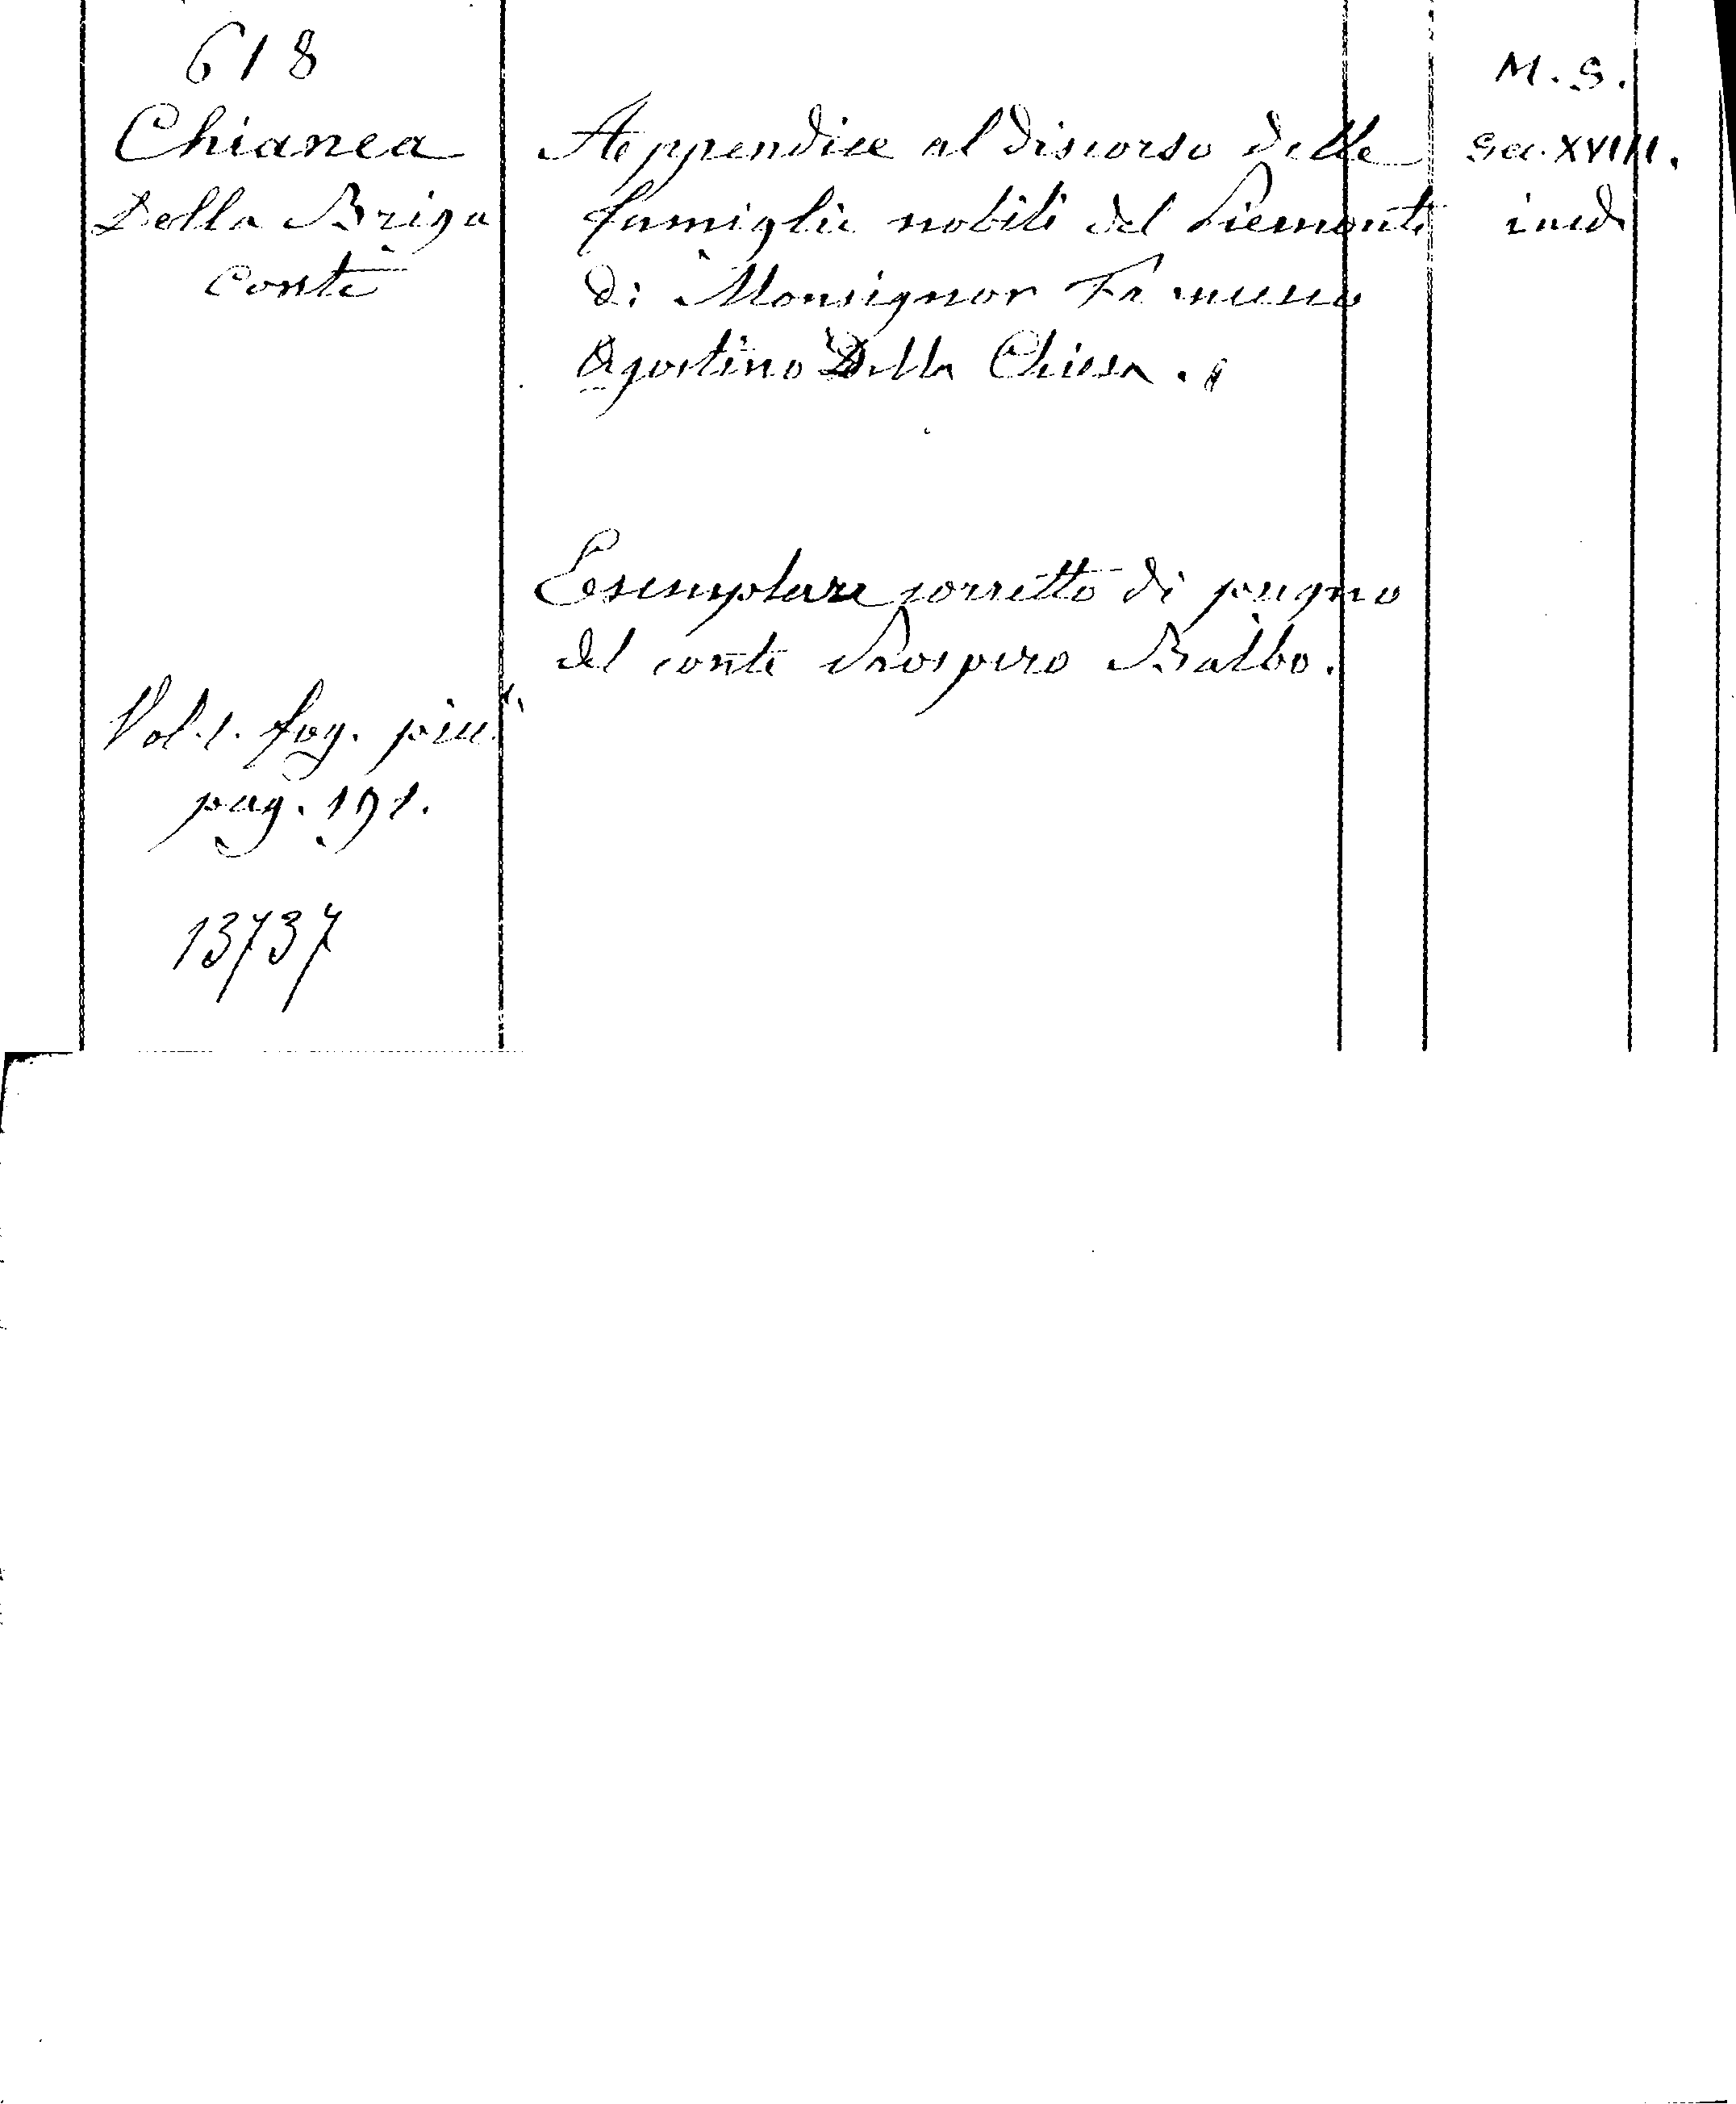 618
Chianea
Della Briga
Conte
Vol. 1. fog.
pag. 191.
13737
Appendice al discorso delle
famiglie nobili del Piemonte
di Monsignor Francesco
Agostino Della Chiesa.
Esemplare corretto di pugno
del conte Prospero Balbo.
M. S.
Sec. XVIII.
ined